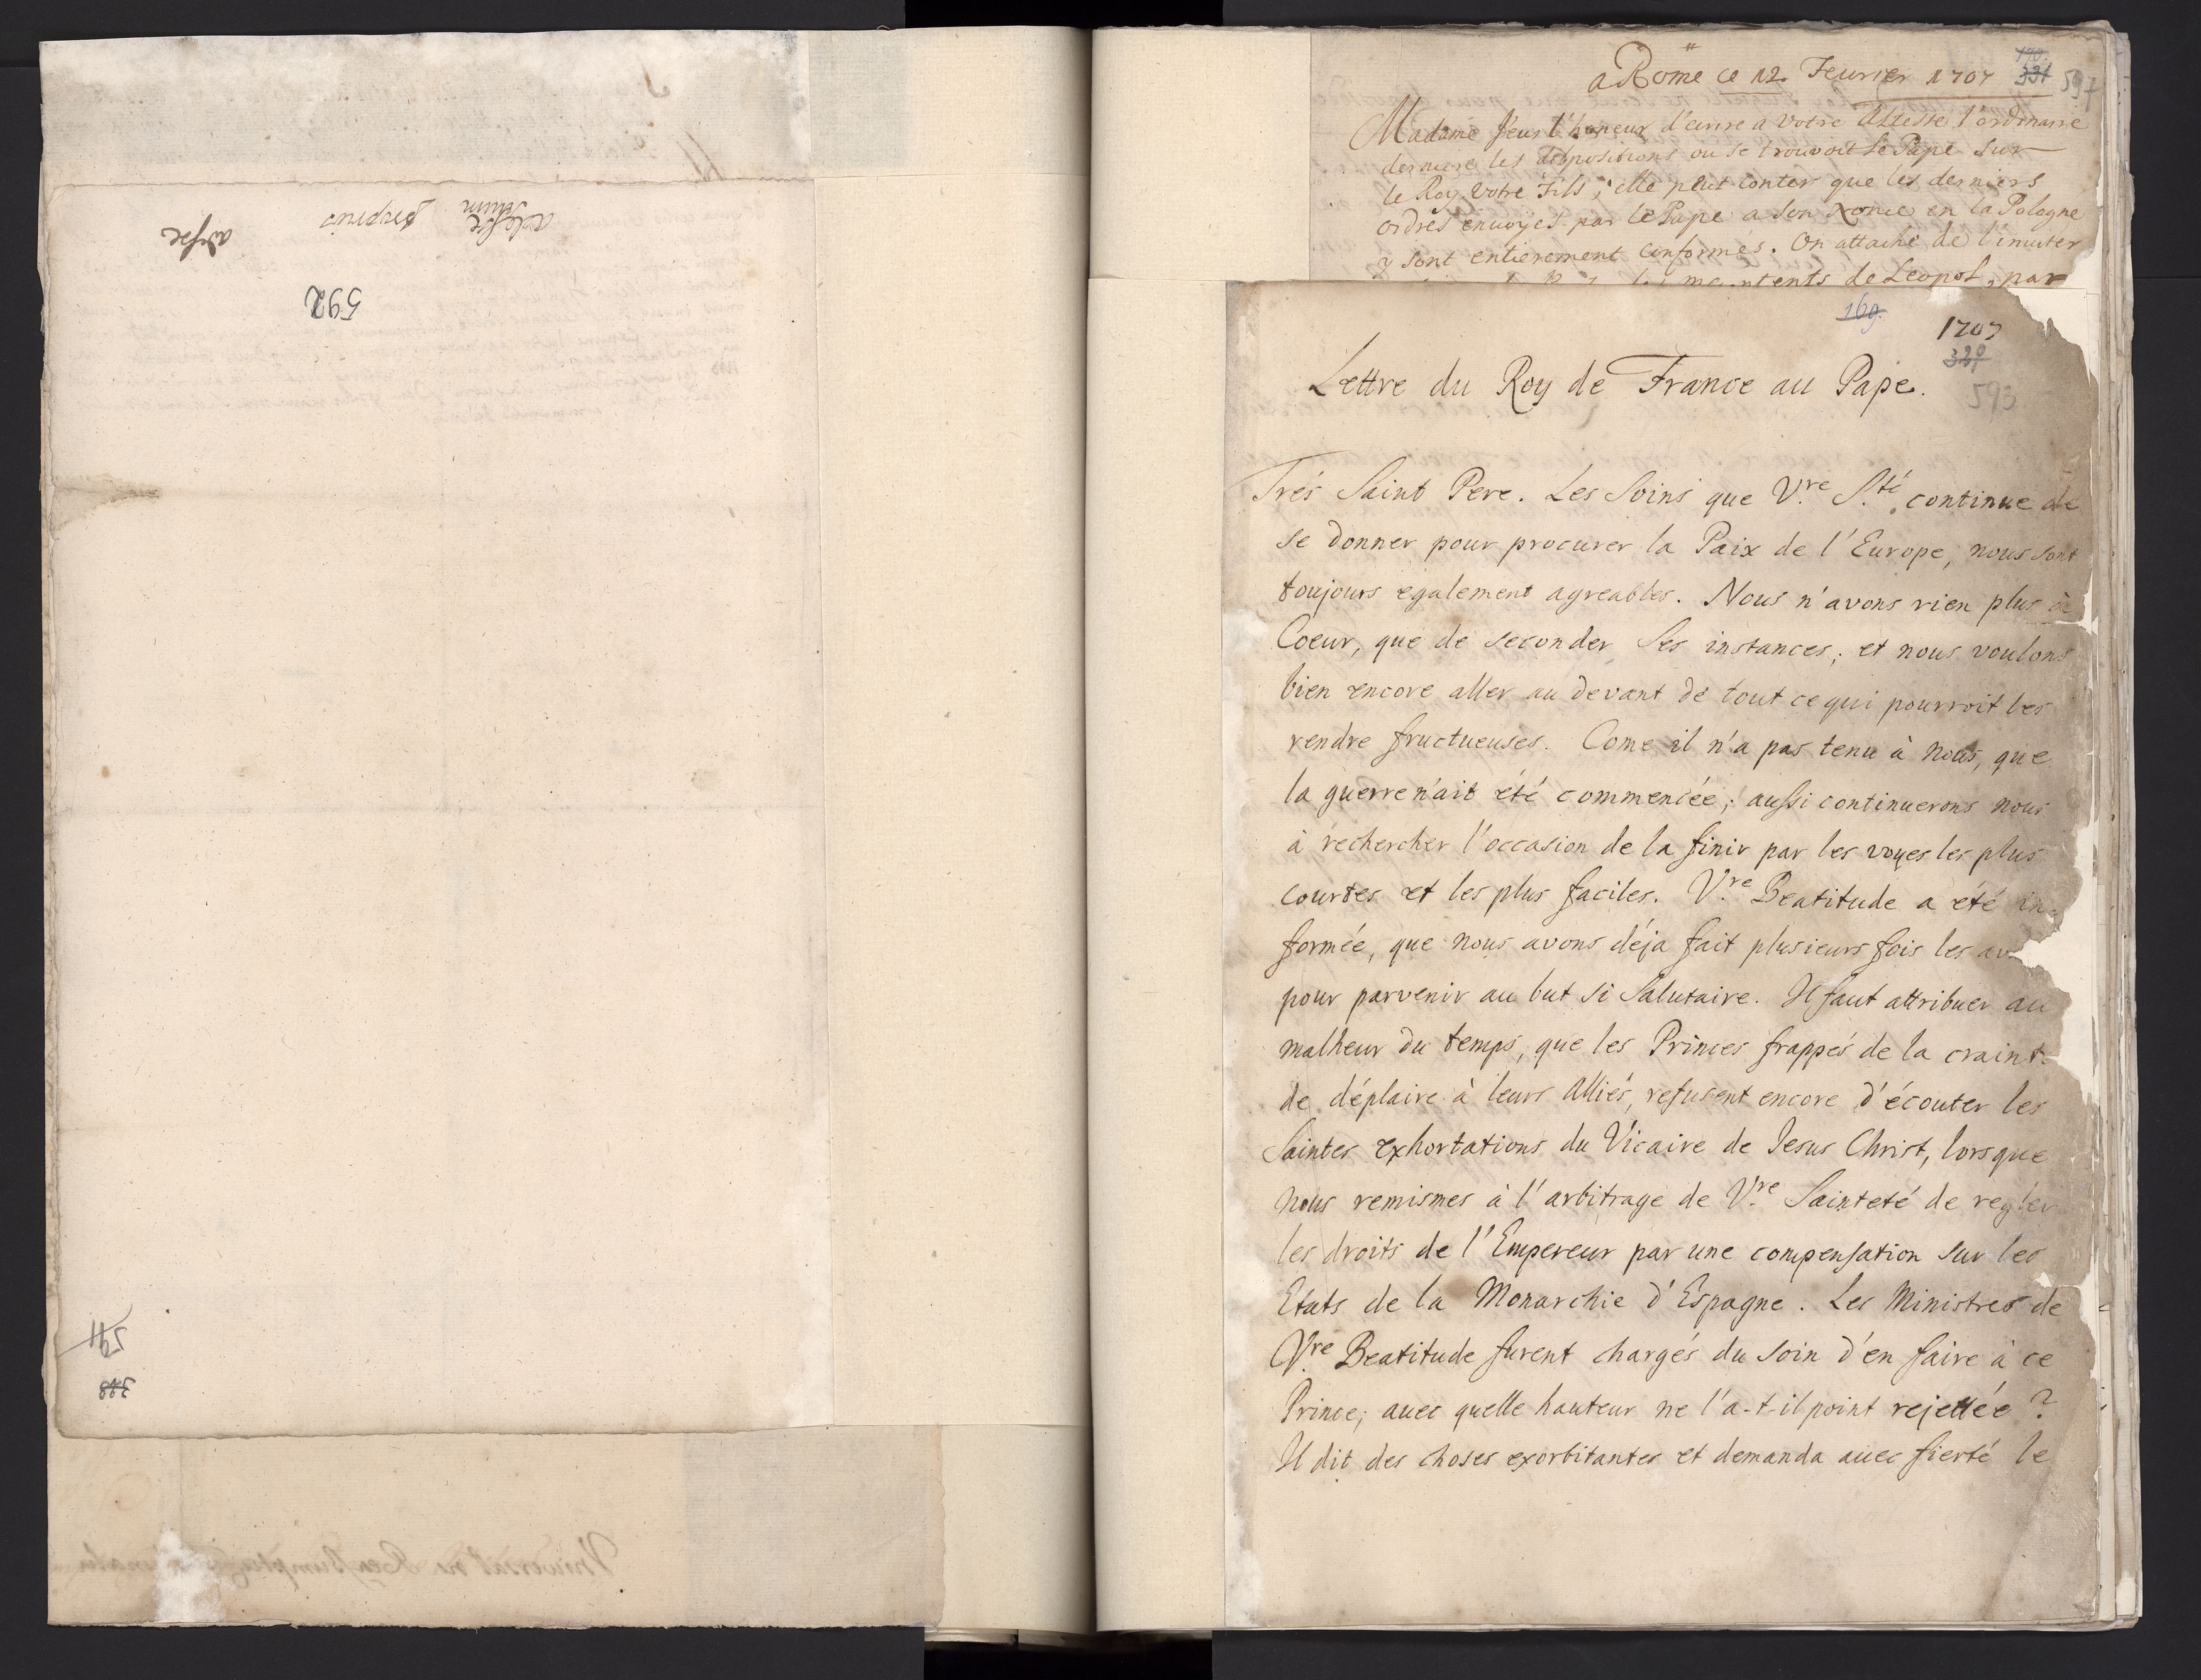 592
591
328
a Rome ce 12 Feurier 1707
170.
331
597
Madame j'eus l'honeur d'ecrire a Votre Altesse l'ordinaire
derniere les dispositions ou se trouvoit le Pape sur
le Roy Votre Fils; elle peut conter que les derniers
ordres envoyés par le Pape a son Nonce en la Pologne
y sont entierement conformes. On attache de l'imiter
de Leopol, par
169.
1707
329
593
Lettre du Roy de France au Pape.
Trés Saint Pere. Les Soins que V.re S.té continue de
se donner pour procurer la Paix de l'Europe, nous sont
toujours egalement agreables. Nous n'avons rien plus à
Coeur, que de seconder Ses instances; et nous voulons
bien encore aller au devant de tout ce qui pourroit les
rendre fructueuses. Come il n'a pas tenu à nous, que
la guerre n'ait été commencée; aussi continuerons nous
à rechercher l'occasion de la finir par les voyes les plus
courtes et les plus faciles. V.re Beatitude a été in-
formée, que nous avons déja fait plusieurs fois les av
pour parvenir au but si Salutaire. Il faut attribuer au
malheur du temps, que les Princes frappés de la craint
de déplaire à leurs Alliés, refusent encore d'écouter les
Saintes exhortations du Vicaire de Jesus Christ, lorsque
nous remismes à l'arbitrage de V.re Sainteté de regler
les droits de l'Empereur par une compensation sur les
Etats de la Monarchie d'Espagne. Les Ministres de
V.re Beatitude furent chargés du soin d'en faire à ce
Prince; avec quelle hauteur ne l'a-t-il point rejettée?
Il dit des choses exorbitantes et demanda avec fierté le